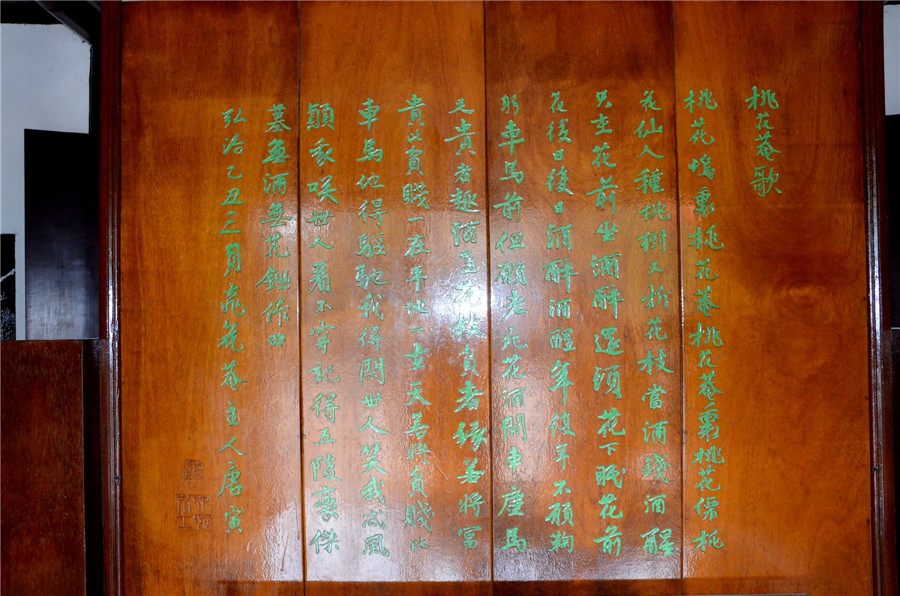 桃花菴歌
桃花塢裏桃花菴桃花菴裏桃花僊桃
花仙人種桃樹又折花枝當酒錢酒醒
只在花前坐酒醉還須花下眠花前
花後日復日酒醉酒醒年復年不願鞠
躬車馬前但願老死花酒間車塵馬
足貴者趣酒盞花枝貧者緣若將富
貴比貧賤一在平地一在天若將貧賤比
車馬他得驅馳我得閒世人笑我忒風
顛我咲世人看不穿記得五陵豪傑
墓無酒無花鋤作田
弘治乙丑三月桃花菴主人唐寅